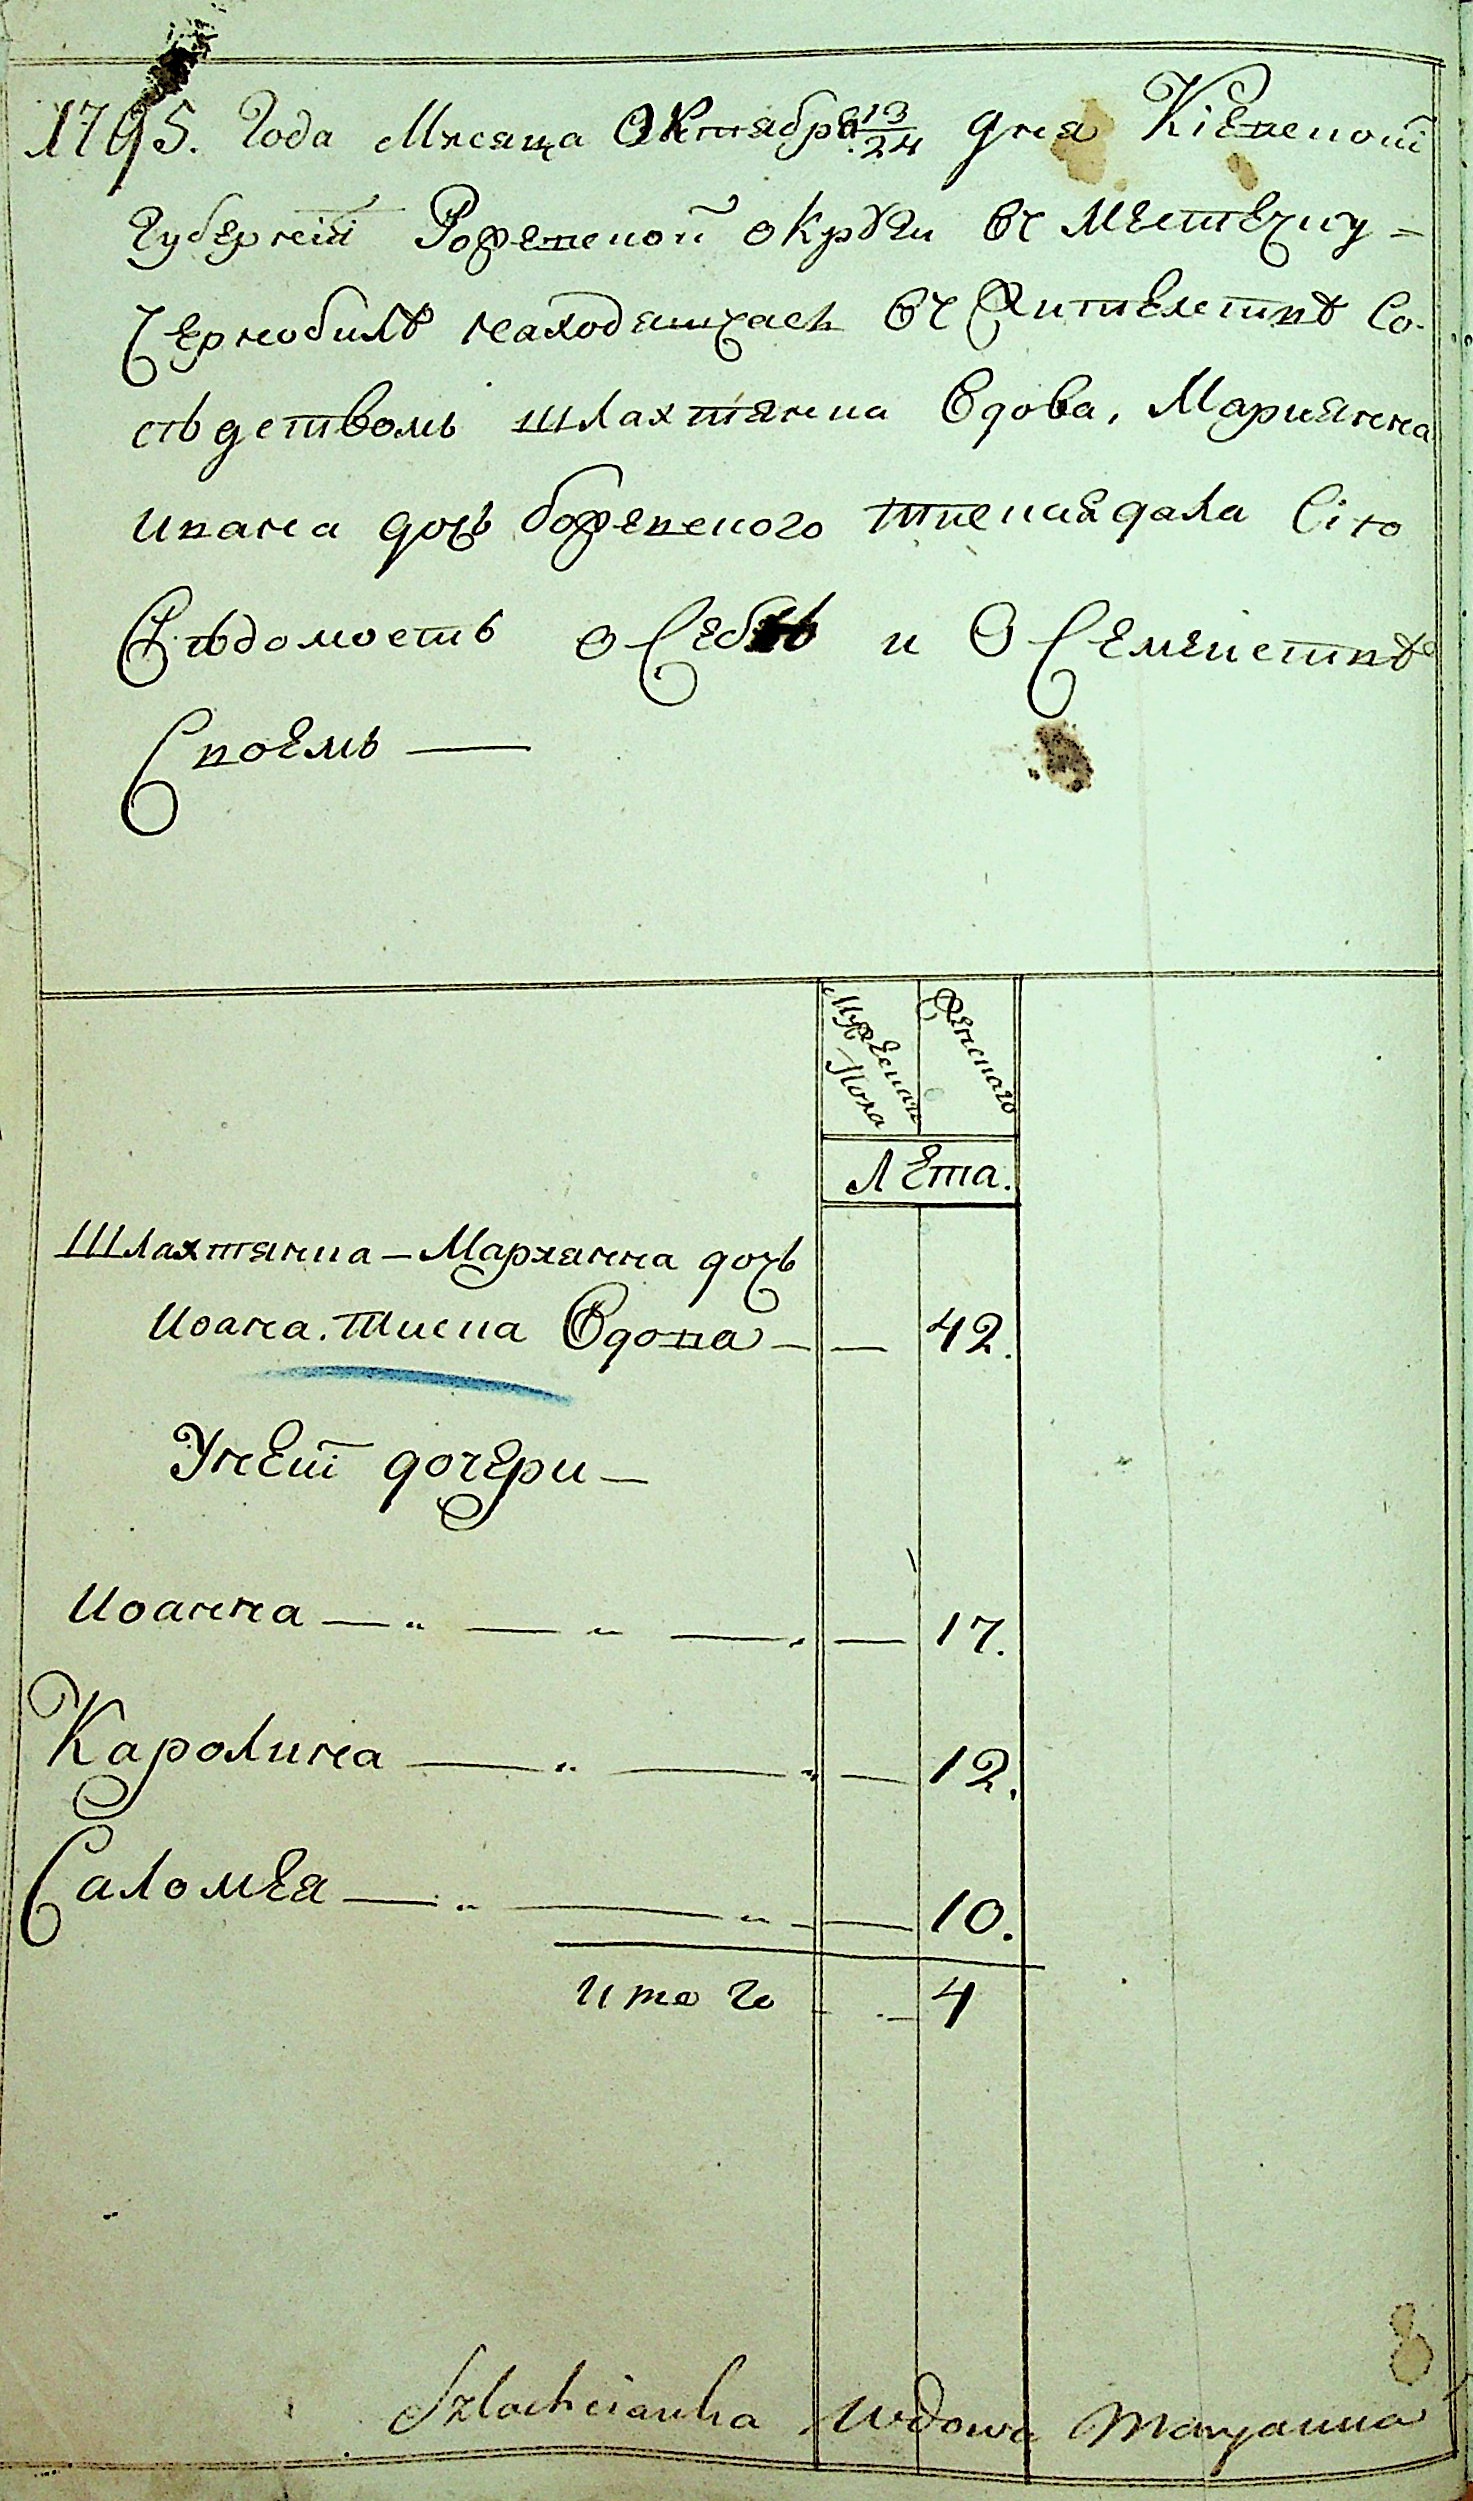 1795. Года Мѣсяца Октября 13/24 дня Кіевской
Губерніи Радомской округи въ Местечку-
Чернобилѣ находящаяся въ Жителствѣ Со-
сѣдствомъ шляхтянка Вдова, Марианна
Ивана дочь тиская дала Сію
Вѣдомость о Себѣ и О Семействѣ
Своемъ —
Мужеска Пола
Женскаго
Лета.
Шляхтянка - Марианна дочь
Иоана. Тиска Вдова — — 42.
У ней дочери —
Иоанна — " — " — " — 17.
Каролина — " — " — 12.
Саломея — " — " — 10.
итого — 4
Szlachcianka Wdowa Maryanna